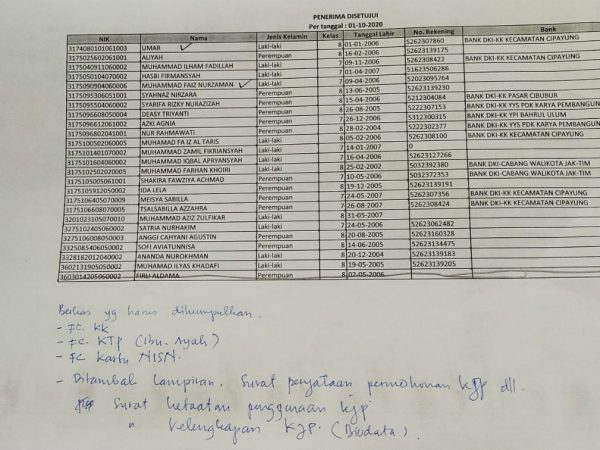 PENERIMA DISETUJUI
Per tanggal : 01-10-2020
NIK Nama Jenis Kelamin Kelas Tanggal Lahir No. Rekening Bank
3174080101061003 UMAR Laki-laki 8 01-01-2006 5262307860 BANK DKI-KK KECAMATAN CIPAYUNG
3175025602061001 ALIYAH Perempuan 8 16-02-2006 52623139175
3175040911060002 MUHAMMAD ILHAM FADILLAH Laki-laki 7 09-11-2006 5262308422 BANK DKI-KK KECAMATAN CIPAYUNG
3175050104070002 HASBI FIRMANSYAH Laki-laki 7 01-04-2007 51623506286
3175090904060006 MUHAMMAD FAIZ NURZAMAN Laki-laki 7 09-04-2006 52023095764
3175095306051001 SYAHNAZ NIRZARA Perempuan 8 13-06-2005 52623139230
3175095504060002 SYARIFA RIZKY NURAZIZAH Perempuan 8 15-04-2006 5212304084 BANK DKI-KK PASAR CIBUBUR
3175096608050004 DEASY TRIYANTI Perempuan 8 26-08-2005 5222307153 BANK DKI-KK YYS PDK KARYA PEMBANGUN
3175096612061002 AZKI AGNIA Perempuan 7 26-12-2006 5312300315 BANK DKI-KK YPI BAHRUL ULUM
3175096802041001 NUR RAHMAWATI Perempuan 8 28-02-2004 5222302377 BANK DKI-KK YYS PDK KARYA PEMBANGUN
3175100502060005 MUHAMAD FA IZ AL TARIS Laki-laki 8 05-02-2006 5262308100 BANK DKI-KK KECAMATAN CIPAYUNG
3175101401070002 MUHAMMAD ZAMIL FIKRIANSYAH Laki-laki 7 14-01-2007 0
3175101604060002 MUHAMMAD IQBAL APRYANSAH Laki-laki 7 16-04-2006 52623127266
3175102502020005 MUHAMMAD FARHAN KHOIRI Laki-laki 8 25-02-2002 5032392380 BANK DKI-CABANG WALIKOTA JAK-TIM
3175105005061001 SHAKIRA FAWZIYA ACHMAD Perempuan 7 10-05-2006 5032372353 BANK DKI-CABANG WALIKOTA JAK-TIM
3175105912050002 IDA LELA Perempuan 8 19-12-2005 52623139191
3175106405070009 MEISYA SABILLA Perempuan 7 24-05-2007 5262307356 BANK DKI-KK KECAMATAN CIPAYUNG
3175106608070005 TSALSABILLA AZZAHRA Perempuan 7 26-08-2007 5262308424 BANK DKI-KK KECAMATAN CIPAYUNG
3201023105070010 MUHAMMAD AZIZ ZULFIKAR Laki-laki 8 31-05-2007
3275102405060002 SATRIA NURHAKIM Laki-laki 7 24-05-2006 52623062482
3275106008050003 ANGGI CAHYANI AGUSTIN Perempuan 8 20-08-2005 52623160328
3325085406050002 SOFI AVIATUNNISA Perempuan 8 14-06-2005 52623134475
3328182012040002 ANANDA NUROKHMAN Laki-laki 8 20-12-2004 52623139183
3602131905050002 MUHAMAD ILYAS KHADAFI Laki-laki 8 19-05-2005 52623139205
3603014205060002 FIRLI ALDAMA Perempuan 8 02-05-2006
Berkas yg harus dikumpulkan.
- FC. KK
- FC. KTP (Ibu-Ayah)
- FC Kartu NISN.
- Ditambah Lampiran, Surat penyataan permohonan KJP dll.
Surat ketaatan penggunaan kjp
" Kelengkapan KJP. (Biodata).